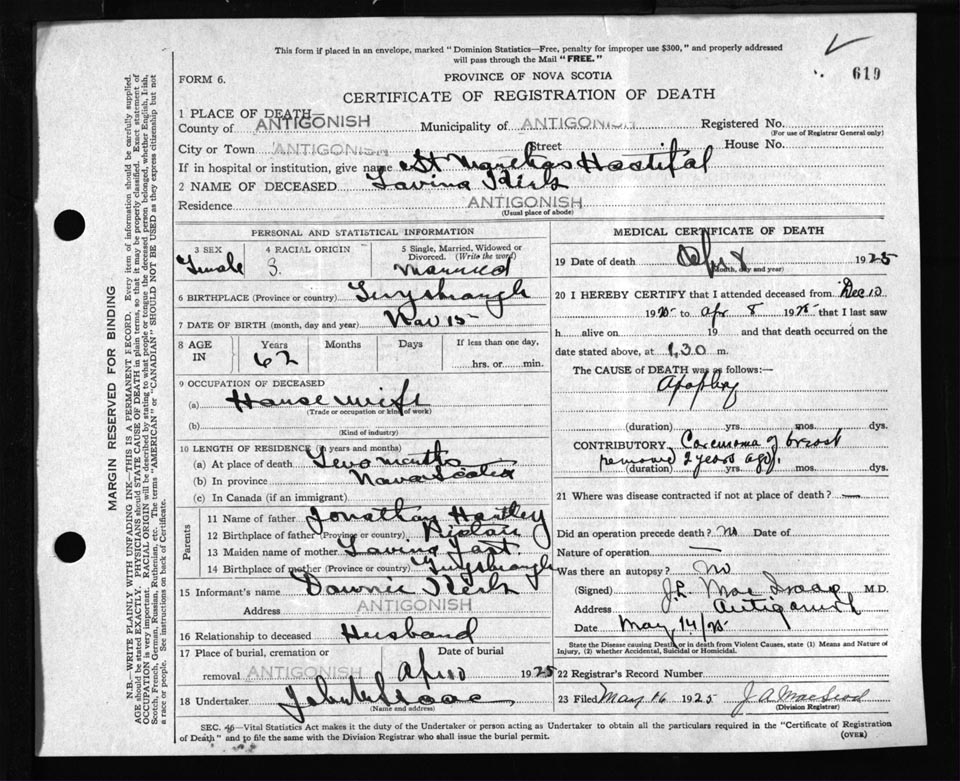 This form if placed in an envelope, marked "Dominion Statistics—Free, penalty for improper use $300," and properly addressed
will pass through the Mail "FREE."
619
FORM 6.
PROVINCE OF NOVA SCOTIA
CERTIFICATE OF REGISTRATION OF DEATH
1 PLACE OF DEATH—
County of ANTIGONISH Municipality of ANTIGONISH Registered No.
(For use of Registrar General only)
City or Town ANTIGONISH Street House No.
If in hospital or institution, give name St Marthas Hospital
2 NAME OF DECEASED Lavina Kirk
Residence ANTIGONISH
(Usual place of abode)
PERSONAL AND STATISTICAL INFORMATION
3 SEX Female
4 RACIAL ORIGIN S.
5 Single, Married, Widowed or Divorced. (Write the word) Married
6 BIRTHPLACE (Province or country) Guysborough
7 DATE OF BIRTH (month, day and year) Nov 15
8 AGE IN Years 62 Months Days If less than one day, hrs. or min.
9 OCCUPATION OF DECEASED
(a) House wife
(Trade or occupation or kind of work)
(b)
(Kind of industry)
10 LENGTH OF RESIDENCE (in years and months)
(a) At place of death Two months
(b) In province Nova Scotia
(c) In Canada (if an immigrant)
Parents
11 Name of father Jonathan Hartley
12 Birthplace of father (Province or country)
13 Maiden name of mother Lavina
14 Birthplace of mother (Province or country) Guysborough
15 Informant's name Kirk
Address ANTIGONISH
16 Relationship to deceased Husband
17 Place of burial, cremation or removal ANTIGONISH Date of burial Apr 10 1925
18 Undertaker John
(Name and address)
MEDICAL CERTIFICATE OF DEATH
19 Date of death Apr 8 1925
Month, day and year)
20 I HEREBY CERTIFY that I attended deceased from Dec 10
19 to Apr 8 19 that I last saw
h alive on 19 and that death occurred on
date stated above, at 1.30 m.
The CAUSE of DEATH was as follows:—
Apoplexy
(duration) yrs. mos. dys.
CONTRIBUTORY Carcinoma of breast
removed 2 years ago.
(duration) yrs. mos. dys.
21 Where was disease contracted if not at place of death? —
Did an operation precede death? No Date of
Nature of operation —
Was there an autopsy? No
(Signed) J.L. Mac Isaac M.D.
Address Antigonish
Date May 14/25
State the Disease causing Death, or in death from Violent Causes, state (1) Means and Nature of
Injury, (2) whether Accidental, Suicidal or Homicidal.
22 Registrar's Record Number
23 Filed May 16 1925 J. A. MacLeod
(Division Registrar)
SEC. 46—Vital Statistics Act makes it the duty of the Undertaker or person acting as Undertaker to obtain all the particulars required in the "Certificate of Registration
of Death" and to file the same with the Division Registrar who shall issue the burial permit. (OVER)
MARGIN RESERVED FOR BINDING
N.B.—WRITE PLAINLY WITH UNFADING INK—THIS IS A PERMANENT RECORD. Every item of information should be carefully supplied.
AGE should be stated EXACTLY. PHYSICIANS should STATE CAUSE OF DEATH in plain terms, so that it may be properly classified. Exact statement of
OCCUPATION is very important. RACIAL ORIGIN will be described by stating to what people or tongue the deceased person belonged, whether English, Irish,
Scotch, French, German, Russian, Ruthenian, etc. The terms "AMERICAN" or "CANADIAN" SHOULD NOT BE USED as they express citizenship but not
a race or people. See instructions on back of Certificate.